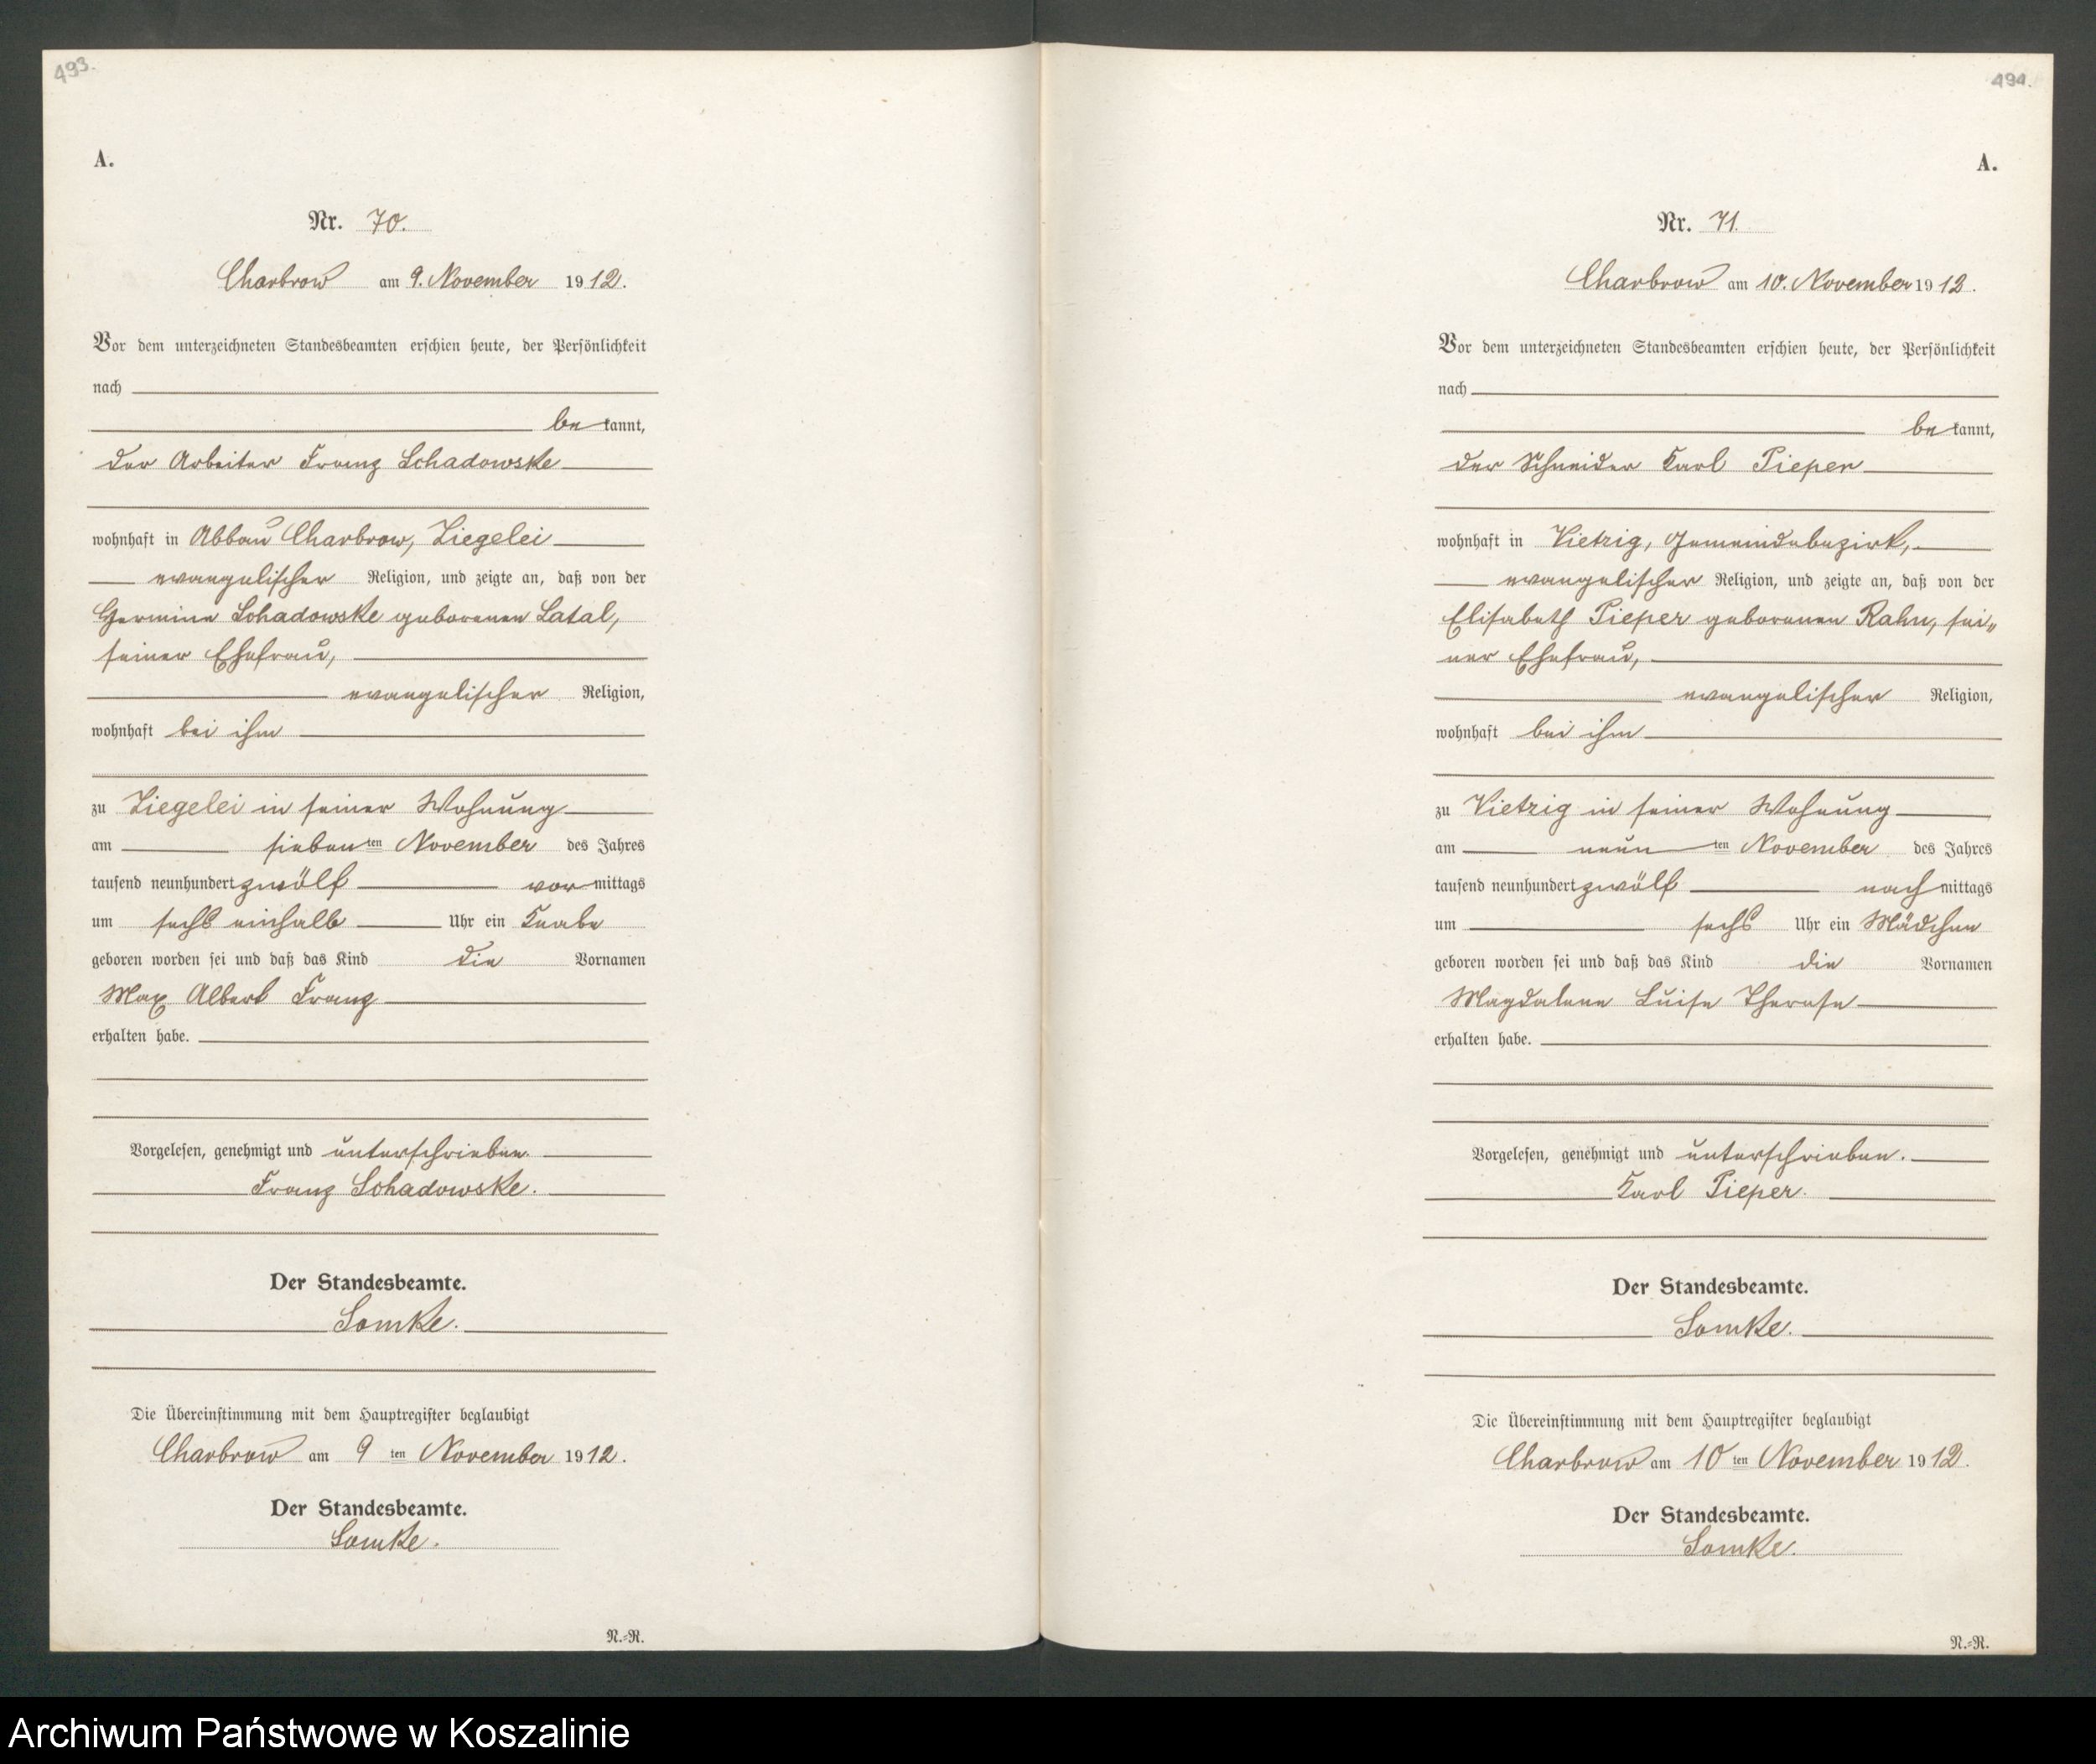 493.
A.
Nr. 70.
Charbrow am 9. November 1912.
Vor dem unterzeichneten Standesbeamten erschien heute, der Persönlichkeit
nach
be kannt,
der Arbeiter Franz Schadowske
wohnhaft in Abbau Charbrow, Ziegelei
evangelischer Religion, und zeigte an, daß von der
Hermine Schadowske geborenen Latal,
seiner Ehefrau,
evangelischer Religion,
wohnhaft bei ihm
zu Ziegelei in seiner Wohnung
am siebenten November des Jahres
tausend neunhundert zwölf vormittags
um sechs einhalb Uhr ein Knabe
geboren worden sei und daß das Kind die Vornamen
Max Albert Franz
erhalten habe.
Vorgelesen, genehmigt und unterschrieben.
Franz Schadowske.
Der Standesbeamte.
Somke.
Die Übereinstimmung mit dem Hauptregister beglaubigt
Charbrow am 9 ten November 1912.
Der Standesbeamte.
Somke.
N.-R.
494.
A.
Nr. 71.
Charbrow am 10. November 1912.
Vor dem unterzeichneten Standesbeamten erschien heute, der Persönlichkeit
nach
be kannt,
der Schneider Karl Pieper
wohnhaft in Vietzig, Gemeindebezirk,
evangelischer Religion, und zeigte an, daß von der
Elisabeth Pieper geborenen Rahn, sei„
ner Ehefrau,
evangelischer Religion,
wohnhaft bei ihm
zu Vietzig in seiner Wohnung
am neun ten November des Jahres
tausend neunhundert zwölf nachmittags
um sechs Uhr ein Mädchen
geboren worden sei und daß das Kind die Vornamen
Magdalene Luise Therese
erhalten habe.
Vorgelesen, genehmigt und unterschrieben.
Karl Pieper.
Der Standesbeamte.
Somke.
Die Übereinstimmung mit dem Hauptregister beglaubigt
Charbrow am 10 ten November 1912.
Der Standesbeamte.
Somke.
N.-R.
Archiwum Państwowe w Koszalinie